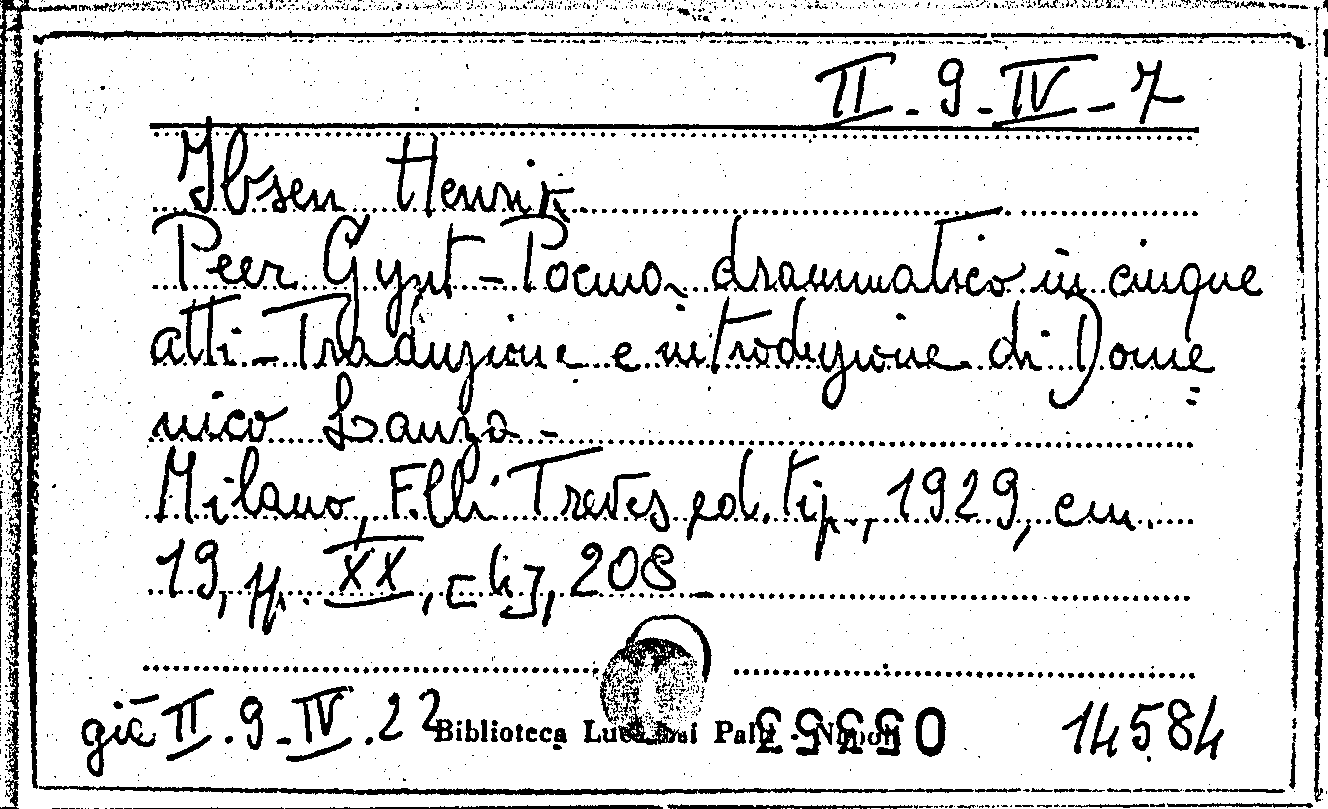 II - 9 - IV - 7
Ibsen Henrik
Peer Gynt - Poema drammatico in cinque
atti - Traduzione e introduzione di Dome=
nico Lanza -
Milano, F.lli Treves ed. tip., 1929, cm.
19, pp. XX, [4], 208 -
già II . 9 - IV . 22
Biblioteca Lucchesi Palli - Napoli
14584